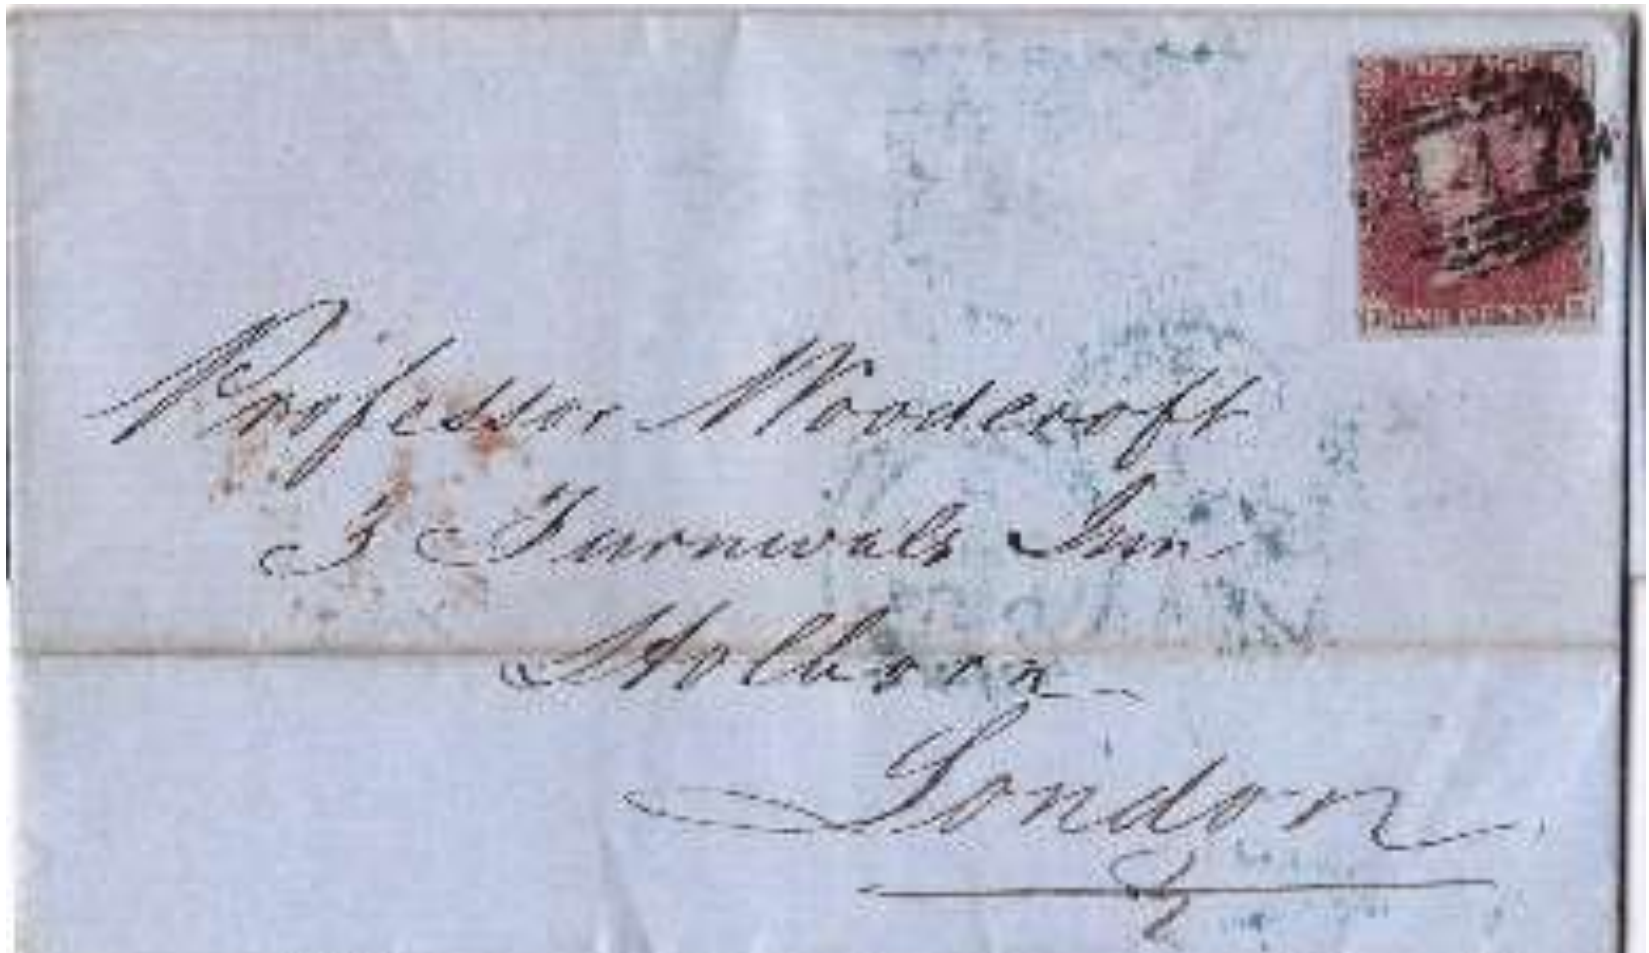 ONE PENNY
Professor Woodcroft
3 Furnivals Inn
Holborn
London